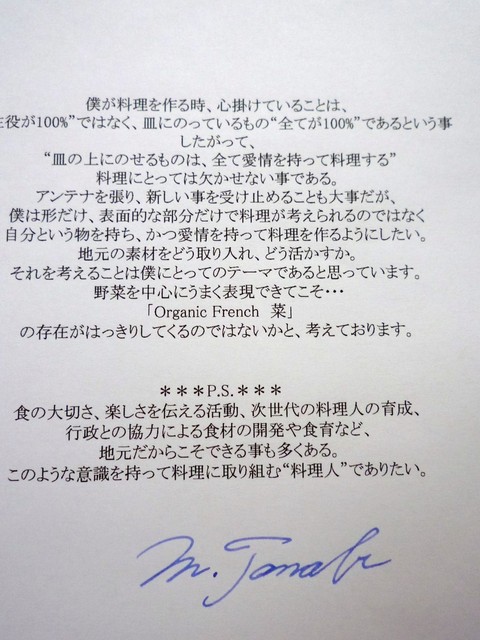 僕が料理を作る時、心掛けていることは、
役が100%”ではなく、皿にのっているもの“全てが100%”であるという事
したがって、
“皿の上にのせるものは、全て愛情を持って料理する”
料理にとっては欠かせない事である。
アンテナを張り、新しい事を受け止めることも大事だが、
僕は形だけ、表面的な部分だけで料理が考えられるのではなく
自分という物を持ち、かつ愛情を持って料理を作るようにしたい。
地元の素材をどう取り入れ、どう活かすか。
それを考えることは僕にとってのテーマであると思っています。
野菜を中心にうまく表現できてこそ・・・
「Organic French 菜」
の存在がはっきりしてくるのではないかと、考えております。
＊＊＊P.S.＊＊＊
食の大切さ、楽しさを伝える活動、次世代の料理人の育成、
行政との協力による食材の開発や食育など、
地元だからこそできる事も多くある。
このような意識を持って料理に取り組む“料理人”でありたい。
M. Tanabe